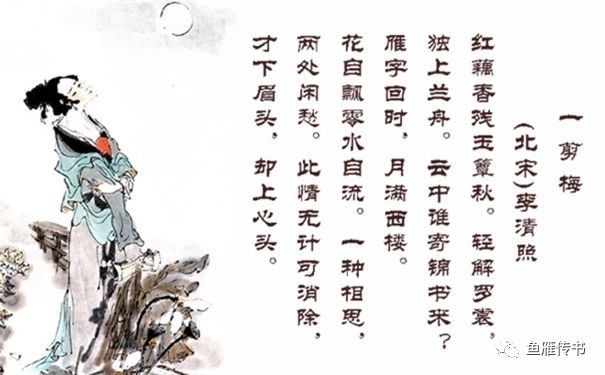 一剪梅
(北宋)李清照
红藕香残玉簟秋。轻解罗裳，
独上兰舟。云中谁寄锦书来？
雁字回时，月满西楼。
花自飘零水自流。一种相思，
两处闲愁。此情无计可消除，
才下眉头，却上心头。
鱼雁传书